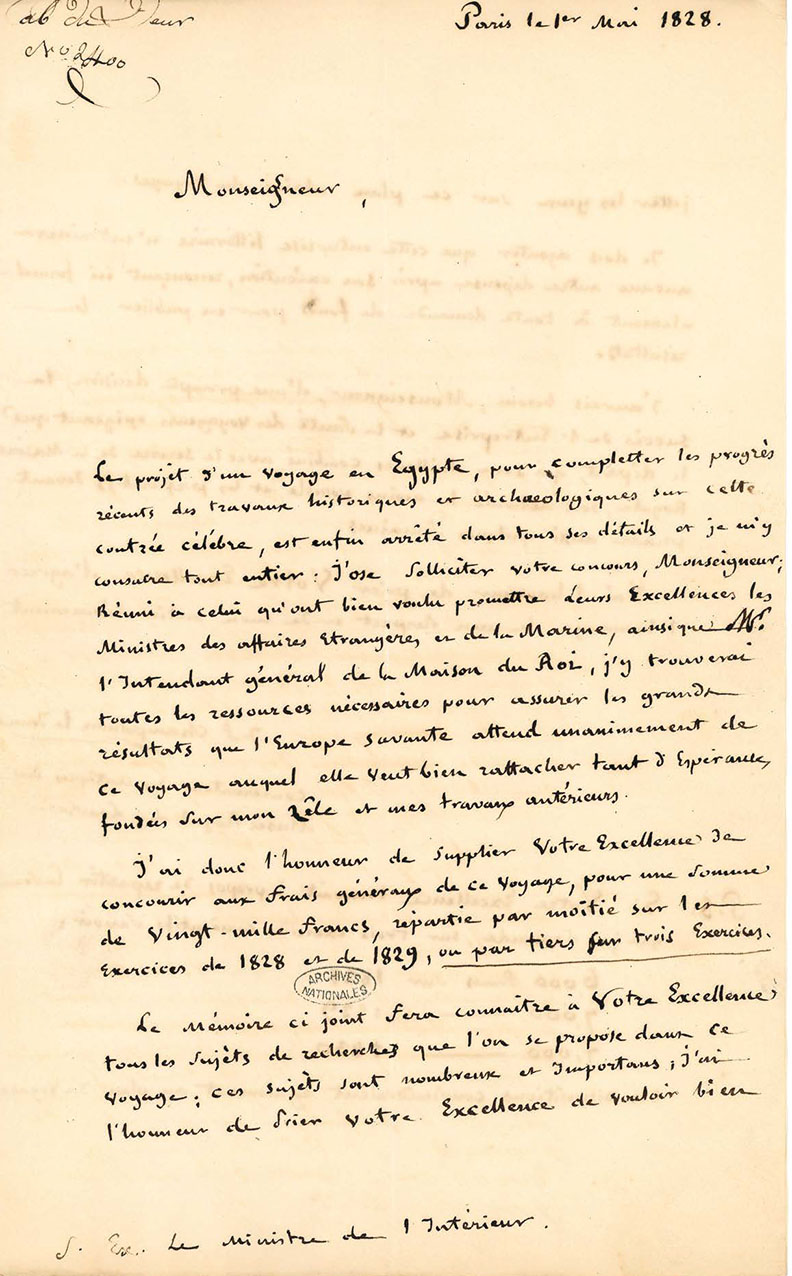 Paris le 1er Mai 1828.
N.o 2400
Monseigneur,
Le projet d'un voyage en Egypte, pour completter les progrès
récents des travaux historiques et archaeologiques sur cette
contrée célébre, est enfin arrêté dans tous ses détails et je m'y
consacre tout entier : J'ose solliciter votre concours, Monseigneur;
Réuni à celui qu'ont bien voulu promettre Leurs Excellences les
Ministres des affaires Etrangères, et de la Marine, ainsique Mr.
l'Intendant général de la Maison du Roi, j'y trouverai
toutes les ressources nécessaires pour assurer les grands
résultats que l'Europe savante attend unanimement de
ce voyage auquel elle veut bien rattacher tant d'Espérances,
fondées sur mon zêle et mes travaux antérieurs.
J'ai donc l'honneur de supplier Votre Excellence de
concourir aux frais généraux de ce voyage, pour une somme
de Vingt-mille francs, répartie par moitié sur les
Exercices de 1828 et de 1829, ou par tiers sur trois Exercices.
ARCHIVES
NATIONALES
Le Mémoire ci joint fera connaître à Votre Excellence
tous les sujèts de recherches que l'on se propose dans ce
voyage ; ces sujèts sont nombreux et Importans ; j'ai
l'honneur de prier Votre Excellence de vouloir bien
S. Ex. Le Ministre de l'Intérieur.